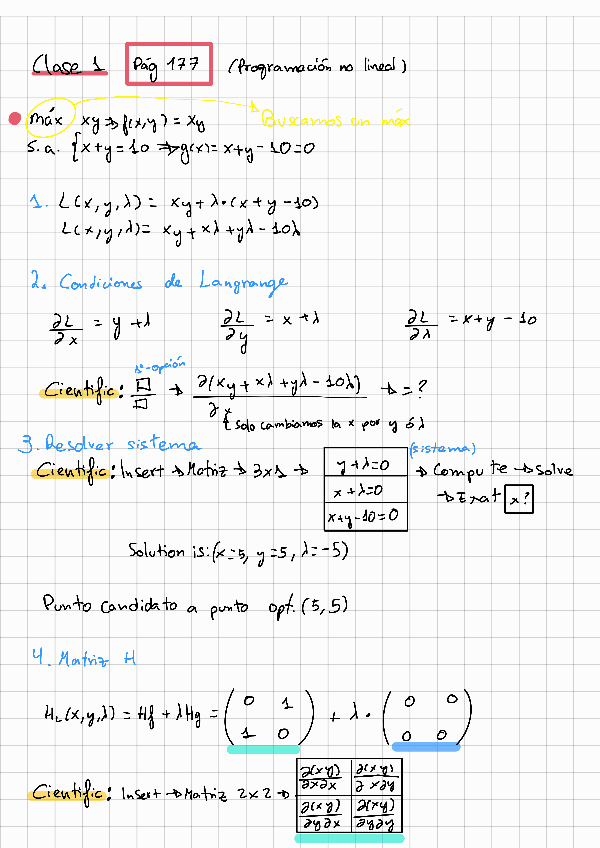 Clase 1 Pág 177 (Programación no lineal)
máx xy ⇒ f(x,y) = xy Buscamos un máx
s.a. {x+y=10 ⇒ g(x)=x+y-10=0
1. L(x,y,λ) = xy+λ·(x+y-10)
L(x,y,λ)= xy+xλ+yλ-10λ
2. Condiciones de Langrange
∂L/∂x = y+λ ∂L/∂y = x+λ ∂L/∂λ = x+y-10
1ª-opción
Cientific: □/□ → ∂(xy+xλ+yλ-10λ)/∂x → = ?
{ Solo cambiamos la x por y ó λ
3. Resolver sistema (sistema)
Cientific: Insert → Matriz → 3x1 → y+λ=0 → Compute → Solve
x+λ=0 → Exat x?
x+y-10=0
Solution is:(x=5, y=5, λ=-5)
Punto candidato a punto opt. (5,5)
4. Matriz H
H_L(x,y,λ) = Hf + λHg = (0 1 / 1 0) + λ· (0 0 / 0 0)
Cientific: Insert → Matriz 2x2 → ∂(xy)/∂x∂x ∂(xy)/∂x∂y
∂(xy)/∂y∂x ∂(xy)/∂y∂y